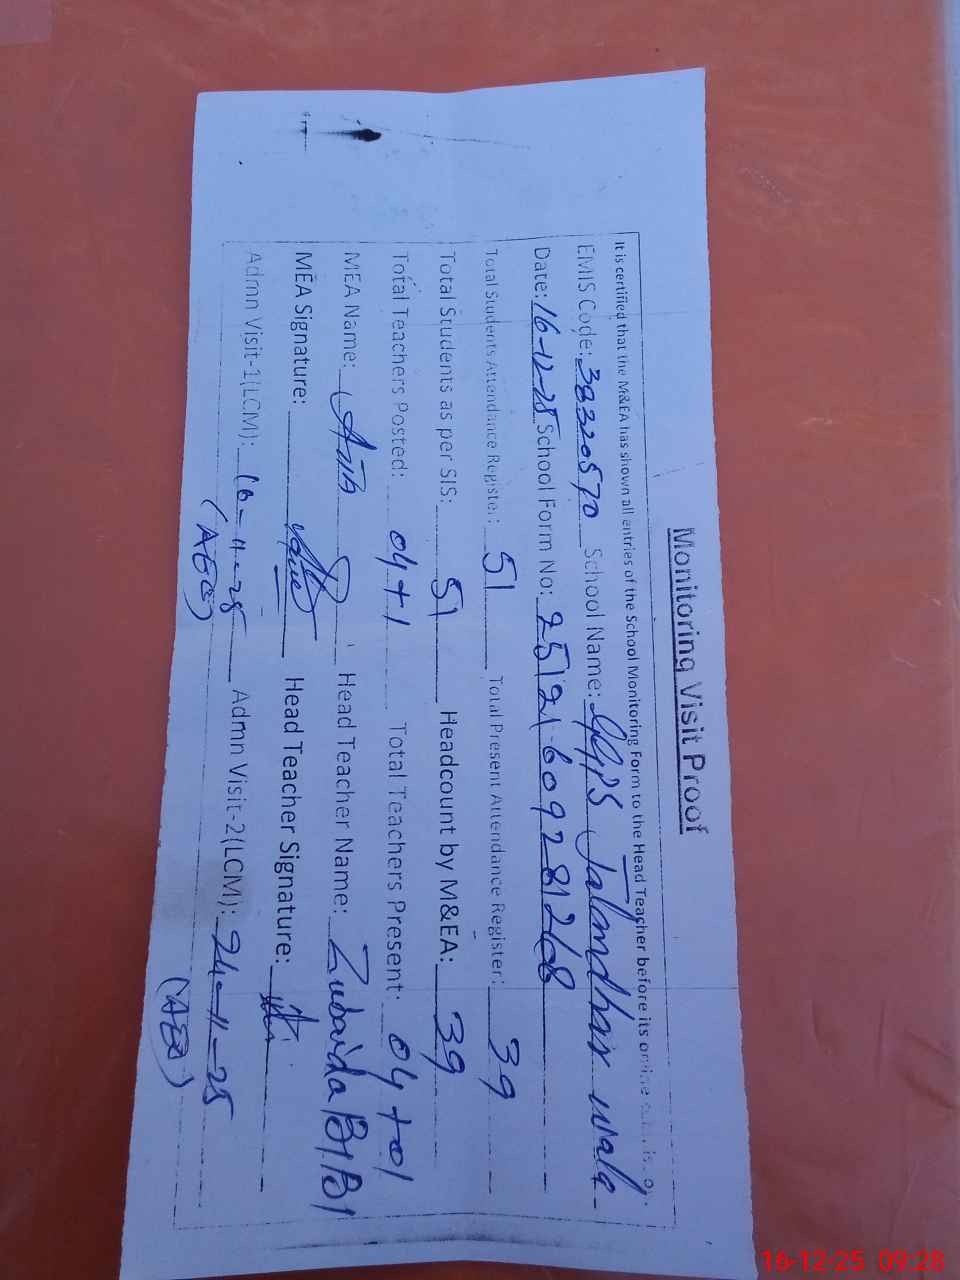 Monitoring Visit Proof
It is certified that the M&EA has shown all entries of the School Monitoring Form to the Head Teacher before its online
EMIS Code: 38320570 School Name: GGPS Jalandhar wala
Date: 16-12-25 School Form No: 25121609281268
Total Students Attendance Register: 51 Total Present Attendance Register: 39
Total Students as per SIS: 51 Headcount by M&EA: 39
Total Teachers Posted: 04+1 Total Teachers Present: 04+01
MEA Name: Head Teacher Name: Zubaida BiBi
MEA Signature: Head Teacher Signature:
Admn Visit-1(LCM): 16-11-25 Admn Visit-2(LCM): 24-11-25
(AEO) (AEO)
16-12-25 09:28